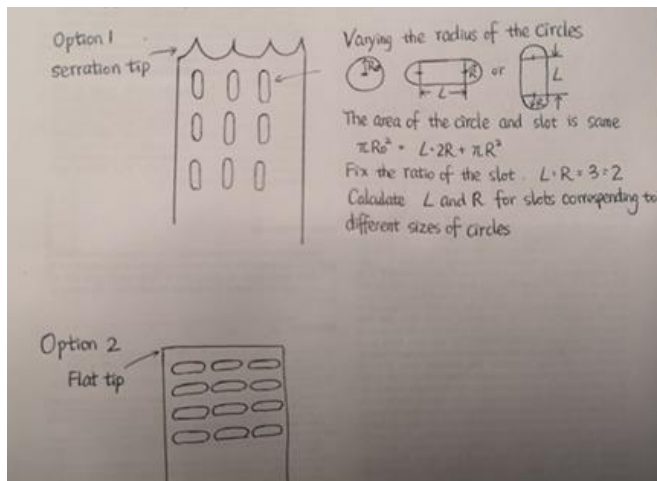 Option 1
serration tip
Varying the radius of the circles
R₀
L
R
or
L
R
The area of the circle and slot is same
πR₀² = L·2R + πR²
Fix the ratio of the slot. L:R = 3:2
Calculate L and R for slots corresponding to
different sizes of circles
Option 2
Flat tip